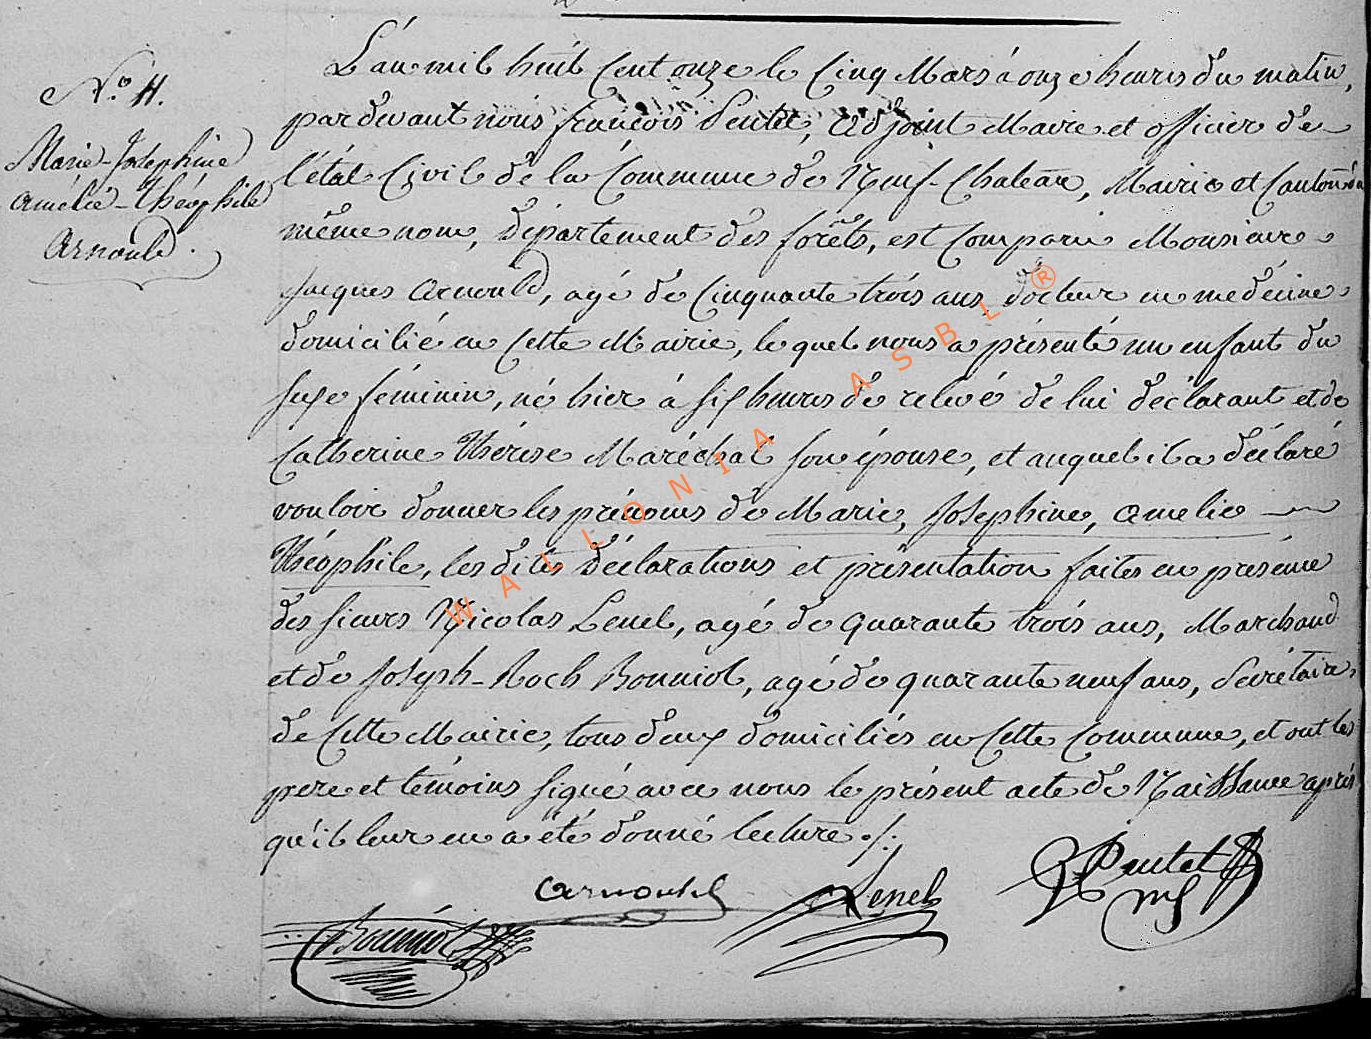 N.° 11.
Marie-Josephine
Amélie-Théophile
Arnould.
L'an mil huit Cent onze le Cinq Mars à onze heures du matin,
pardevant nous françois Pentet, Adjoint Maire et officier de
l'état Civil de la Commune de Neuf-Chateau, Mairie et Canton du
même nom, département des forêts, est Comparu Monsieur
Jacques Arnould, agé de Cinquante trois ans docteur en medecine
domicilié en Cette Mairie, lequel nous a présenté un enfant du
sexe féminin, né hier à six heures de relevé de lui déclarant et de
Catherine Thérese Maréchal son épouse, et auquel il a déclaré
vouloir donner les prénoms de Marie, Josephine, Amelie
Théophile, les dites déclarations et présentation faites en présence
des sieurs Nicolas Lenel, agé de quarante trois ans, Marchand
et de Joseph-Roch Bonniot, agé de quarante neuf ans, Secrétaire
de Cette Mairie, tous deux domiciliés en Cette Commune, et ont les
pere et témoins signé avec nous le présent acte de Naissance après
qu'il leur en a été donné lecture ./.
Arnould
Lenel
Pentet
Bonniot
WALLONIA ASBL ®